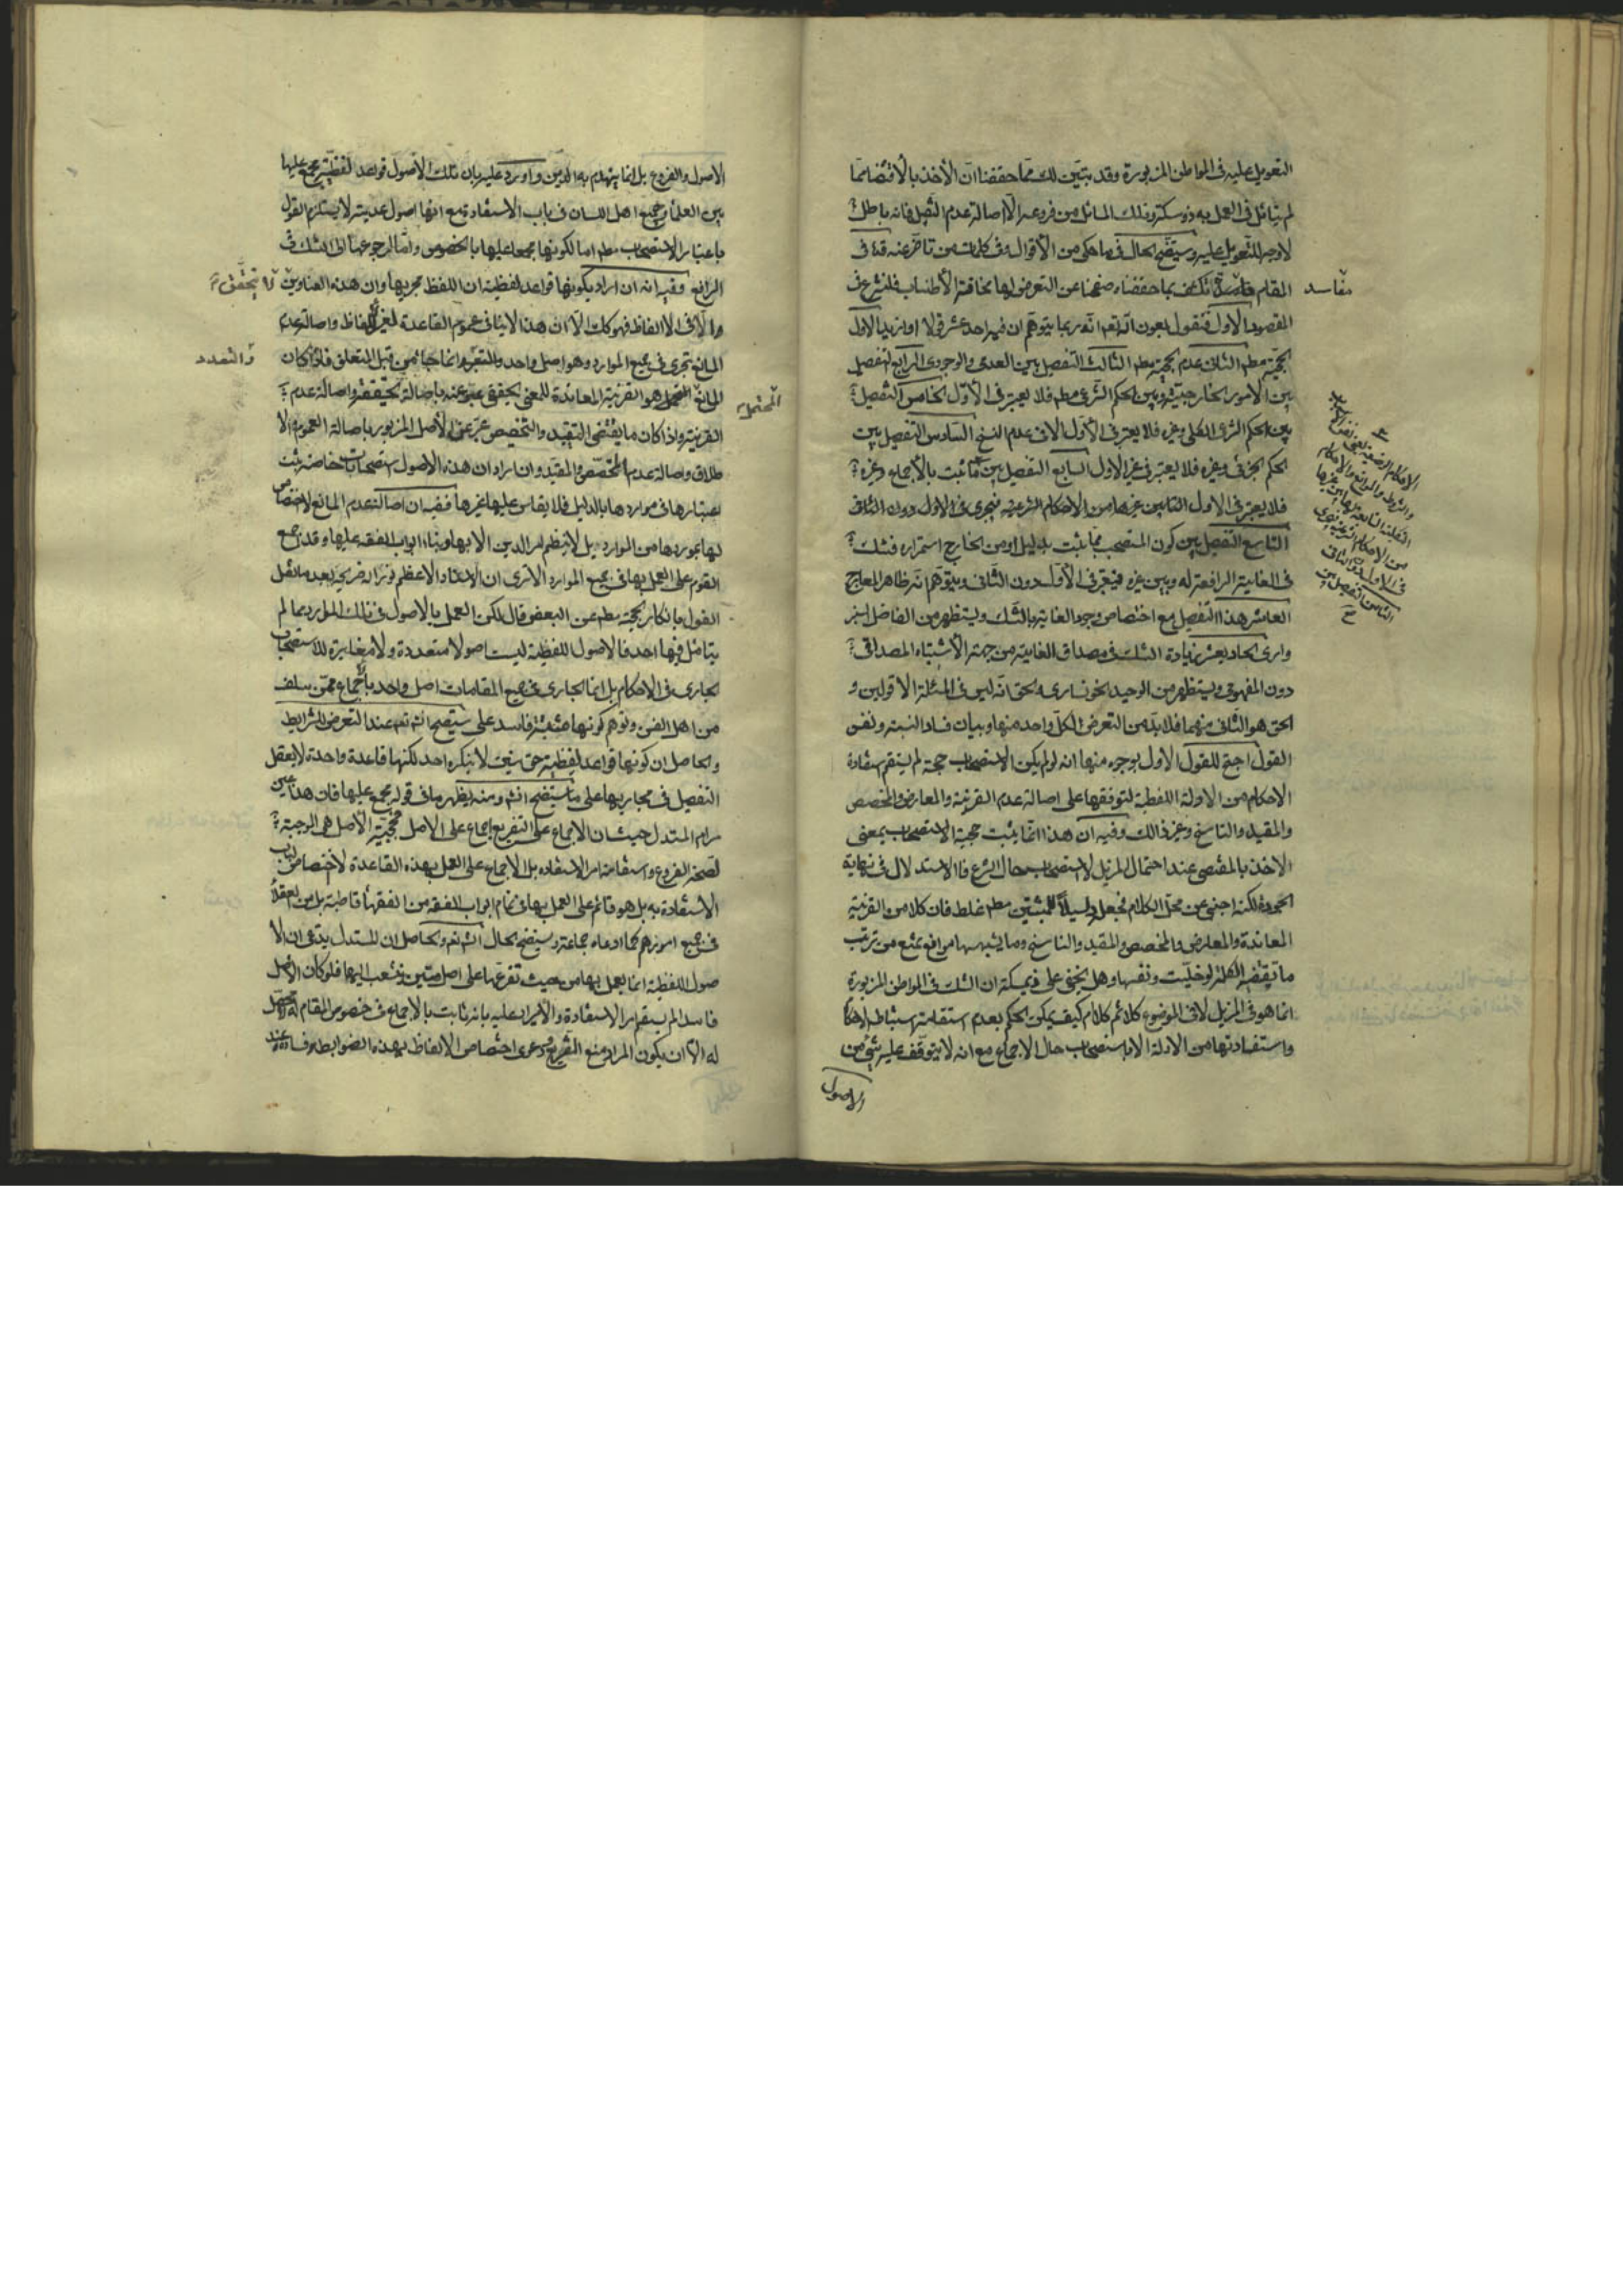 التعويل عليه فى المواطن المزبورة وقد يتبين لك مما حققنا ان الأخذ بالاقتضا مما
لم يتأمل فى العمل به ذو مسكة وذلك المسائل من فروعه الا اصالة عدم النقل فانه باطل
لا وجه للتعويل عليه وسيتضح الحال فى ما حكى من الأقوال وفى كلمات من تاخر عنه قده فى
المقام مفاسد تنكشف بما حققناه صفحنا عن التعرض لها مخافة الأطناب فلنشرع فى
المقصود الأول فنقول بعون الله تعم انه ربما يتوهم ان فيه احد عشر قولا او ازيد الاول
الحجية مطم الثانى عدم الحجية مطم الثالث التفصيل بين العدمى والوجودى الرابع التفصيل
بين الأمور الخارجية وبين الحكم الشرعى مطم فلا يعتبر فى الأول الخامس التفصيل
بين الحكم الشرعى الكلى وغيره فلا يعتبر فى الأول الا فى عدم النسخ السادس التفصيل بين
الحكم الجزئى وغيره فلا يعتبر فى غير الاول السابع التفصيل بين ما ثبت بالأجماع وغيره
فلا يعتبر فى الاول الثامن بين غيرها من الاحكام الشرعية فيجرى فى الاول دون الثانى
التاسع التفصيل بين كون المستصحب مما يثبت بدليل او من الخارج استمراره فشك
فى الغاية الرافعة له وبين غيره فيعتبر فى الأول دون الثانى ويتوهم انه ظاهر المعارج
العاشر هذا التفصيل مع اختصاص وجود الغاية بالشك ويستظهر من الفاضل السبز
وارى الحاديعشر زيادة الشك فى مصداق الغاية من جهة الأشتباه المصداقى
دون المفهومى ويستظهر من الوحيد الخونسارى والحق انه ليس فى المسئلة الا قولين و
الحق هو الثانى منهما فلا بد من التعرض لكل واحد منها وبيان فساد النسبة ونفس
القول احتج للقول الأول بوجوه منها انه لو لم يكن الاستصحاب حجة لم يستقم استفادة
الاحكام من الأدلة اللفظية لتوقفها على اصالة عدم القرينة والمعارض والمخصص
والمقيد والناسخ وغير ذلك وفيه ان هذا انما يثبت حجية الاستصحاب بمعنى
الاخذ بالمقتضى عند احتمال المزيل لا استصحاب حال الشرع فالاستدلال فى نهاية
الجودة لكنه اجنبى عن محل الكلام فجعل دليلا للمثبتين مطم غلط فان كلا من القرينة
المعاندة والمعارض والمخصص والمقيد والناسخ وما يشبهها موانع تمنع من ترتب
ما تقتضيه الكلمة لو خليت ونفسها وهل يخفى على ذيمسكة ان الشك فى المواطن المزبورة
انما هو فى المزيل لا فى الموضوع كلا ثم كلا ام كيف يمكن الحكم بعدم استقامة استنباط الاحكام
واستفادتها من الادلة الا باستصحاب حال الاجماع مع انه لا يتوقف عليه شئ من
الاصول
مفاسد
الاحكام الوضعية
والشرط والموانع والاحكام
التكليفية التابعة لها وبين غيرها
من الاحكام الشرعية فيجرى
فى الاول دون الثانى
الثامن التفصيل بين
الاصول والفروع بل انما ينهدم به الدين واورد عليه بان تلك الأصول قواعد لفظية مجمع عليها
بين العلماء وجميع اهل اللسان فى باب الاستفادة مع انها اصول عدمية لا يستلزم القول
باعتبار الاستصحاب مطم اما لكونها مجمعا عليها بالخصوص واما لرجوعها الى الشك فى
الرافع وفيه انه ان اراد بكونها قواعد لفظية ان اللفظ مجريها وان هذه العناوين لا يتحقق
الا فى الالفاظ فهو كك الا ان هذا لا ينافى عموم القاعدة لغير الألفاظ واصالة عدم
المانع تجرى فى جميع الموارد وهو اصل واحد والتغير والتعدد انما جاء من قبل المتعلق فاذا كان
المانع المحتمل هو القرينة المعاندة للمعنى الحقيقى عبر عنه باصالة الحقيقة واصالة عدم
القرينة واذا كان ما يقتضى التقييد والتخصيص عبر عن الأصل المزبور باصالة العموم والا
طلاق واصالة عدم المخصص والمقيد وان اراد ان هذه الاصول استصحابات خاصة ثبت
اعتبارها فى مواردها بالدليل فلا يقاس عليها غيرها ففيه ان اصالة عدم المانع لا اختصاص
لها بمورد من الموارد بل لا ينتظم امر الدين الا بها وبناء ابواب الفقه عليها وقد اجمع
القوم على العمل بها فى جميع الموارد الا ترى ان الاستاد الاعظم نور الله ضريحه بعد ما نقل
القول بانكار الحجية مطم عن البعض قال لكن العمل بالاصول فى تلك الموارد مما لم
يتأمل فيها احد فالاصول اللفظية ليست اصولا متعددة ولا مغايرة للاستصحاب
الجارى فى الاحكام بل انما الجارى فى جميع المقامات اصل واحد باجماع ممن سلف
من اهل الفن وتوهم كونها متعددة فاسد على ما ستيضح انشاء تعم عند التعرض للشرايط
والحاصل ان كونها قواعد لفظية حق متين لا ينكره احد لكنها قاعدة واحدة لا يعقل
التفصيل فى مجاريها على ما سيتضح انشاء ومنه يظهر ما فى قوله مجمع عليها فان هذا عين
مرام المستدل حيث ان الاجماع على التفريع اجماع على الاصل فحجية الأصل هى الموجبة
لصحة الفروع واستقامة امر الاستفاده بل الأجماع على العمل بهذه القاعدة لا اختصاص لباب
الاستفادة به بل هو قائم على العمل بها فى تمام ابواب الفقه من الفقهاء قاطبة بل من العقلاء
فى جميع امورهم كما ادعاه جماعة وسيتضح الحال انشاء تعم والحاصل ان المستدل يدعى ان الا
صول اللفظية انما يعمل بها من حيث تفرعها على اصل متين وتشعب اليها فلو كان الأصل
فاسدا لم يستقم امر الاستفادة والأيراد عليه بانه ثابت بالاجماع فى خصوص المقام لا محصل
له الا ان يكون المراد منع التفريع ودعوى اختصاص الالفاظ بهذه الضوابط وفساده عند
لا يتحقق
والتعدد
المحتمل